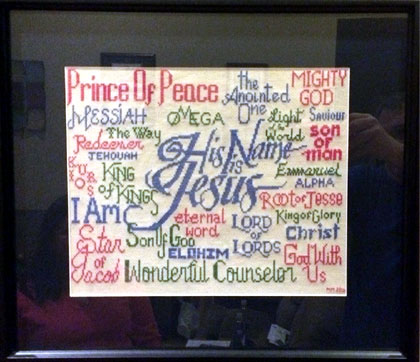 Prince Of Peace
the Anointed One
MIGHTY GOD
MESSIAH
OMEGA
Light of World
Saviour
The Way
Redeemer
JEHOVAH
His Name is Jesus
son of man
Emmanuel
ALPHA
KING of KINGS
Root of Jesse
I AM
eternal word
LORD of LORDS
King of Glory
Christ
Star of Jacob
Son Of God
ELOHIM
God With Us
Wonderful Counselor